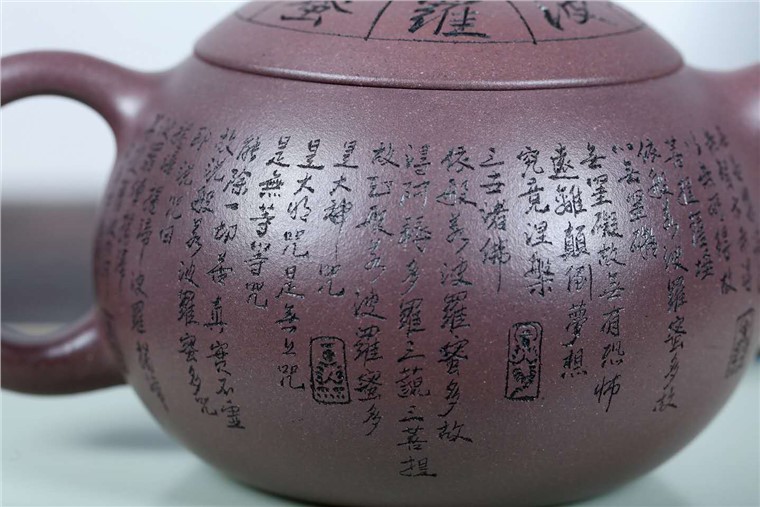 波羅蜜
以無所得故
菩提薩埵
依般若波羅蜜多故
心無罣礙
無罣礙故無有恐怖
遠離顛倒夢想
究竟涅槃
三世諸佛
依般若波羅蜜多故
得阿耨多羅三藐三菩提
故知般若波羅蜜多
是大神咒
是大明咒是無上咒
是無等等咒
能除一切苦真實不虛
故說般若波羅蜜多咒
即說咒曰